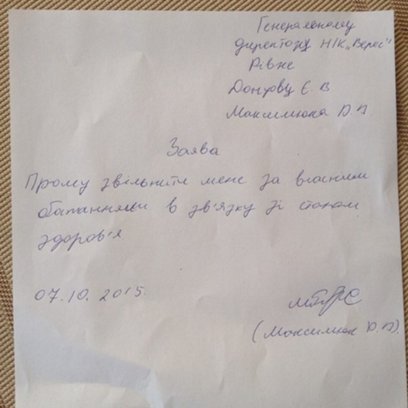 Генеральному
директору НК „Верес"
Рівне
Донцову Є. В
Максимюка Д П
Заява
Прошу звільнити мене за власним
бажанням в зв'язку зі станом
здоров'я
07.10.2015.
(Максимюк Д.П).